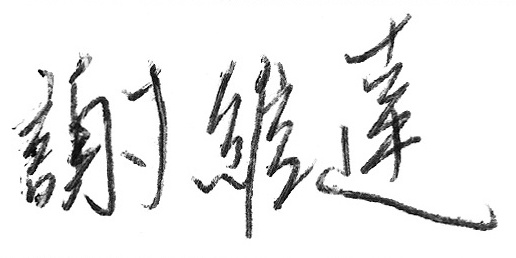 謝維達